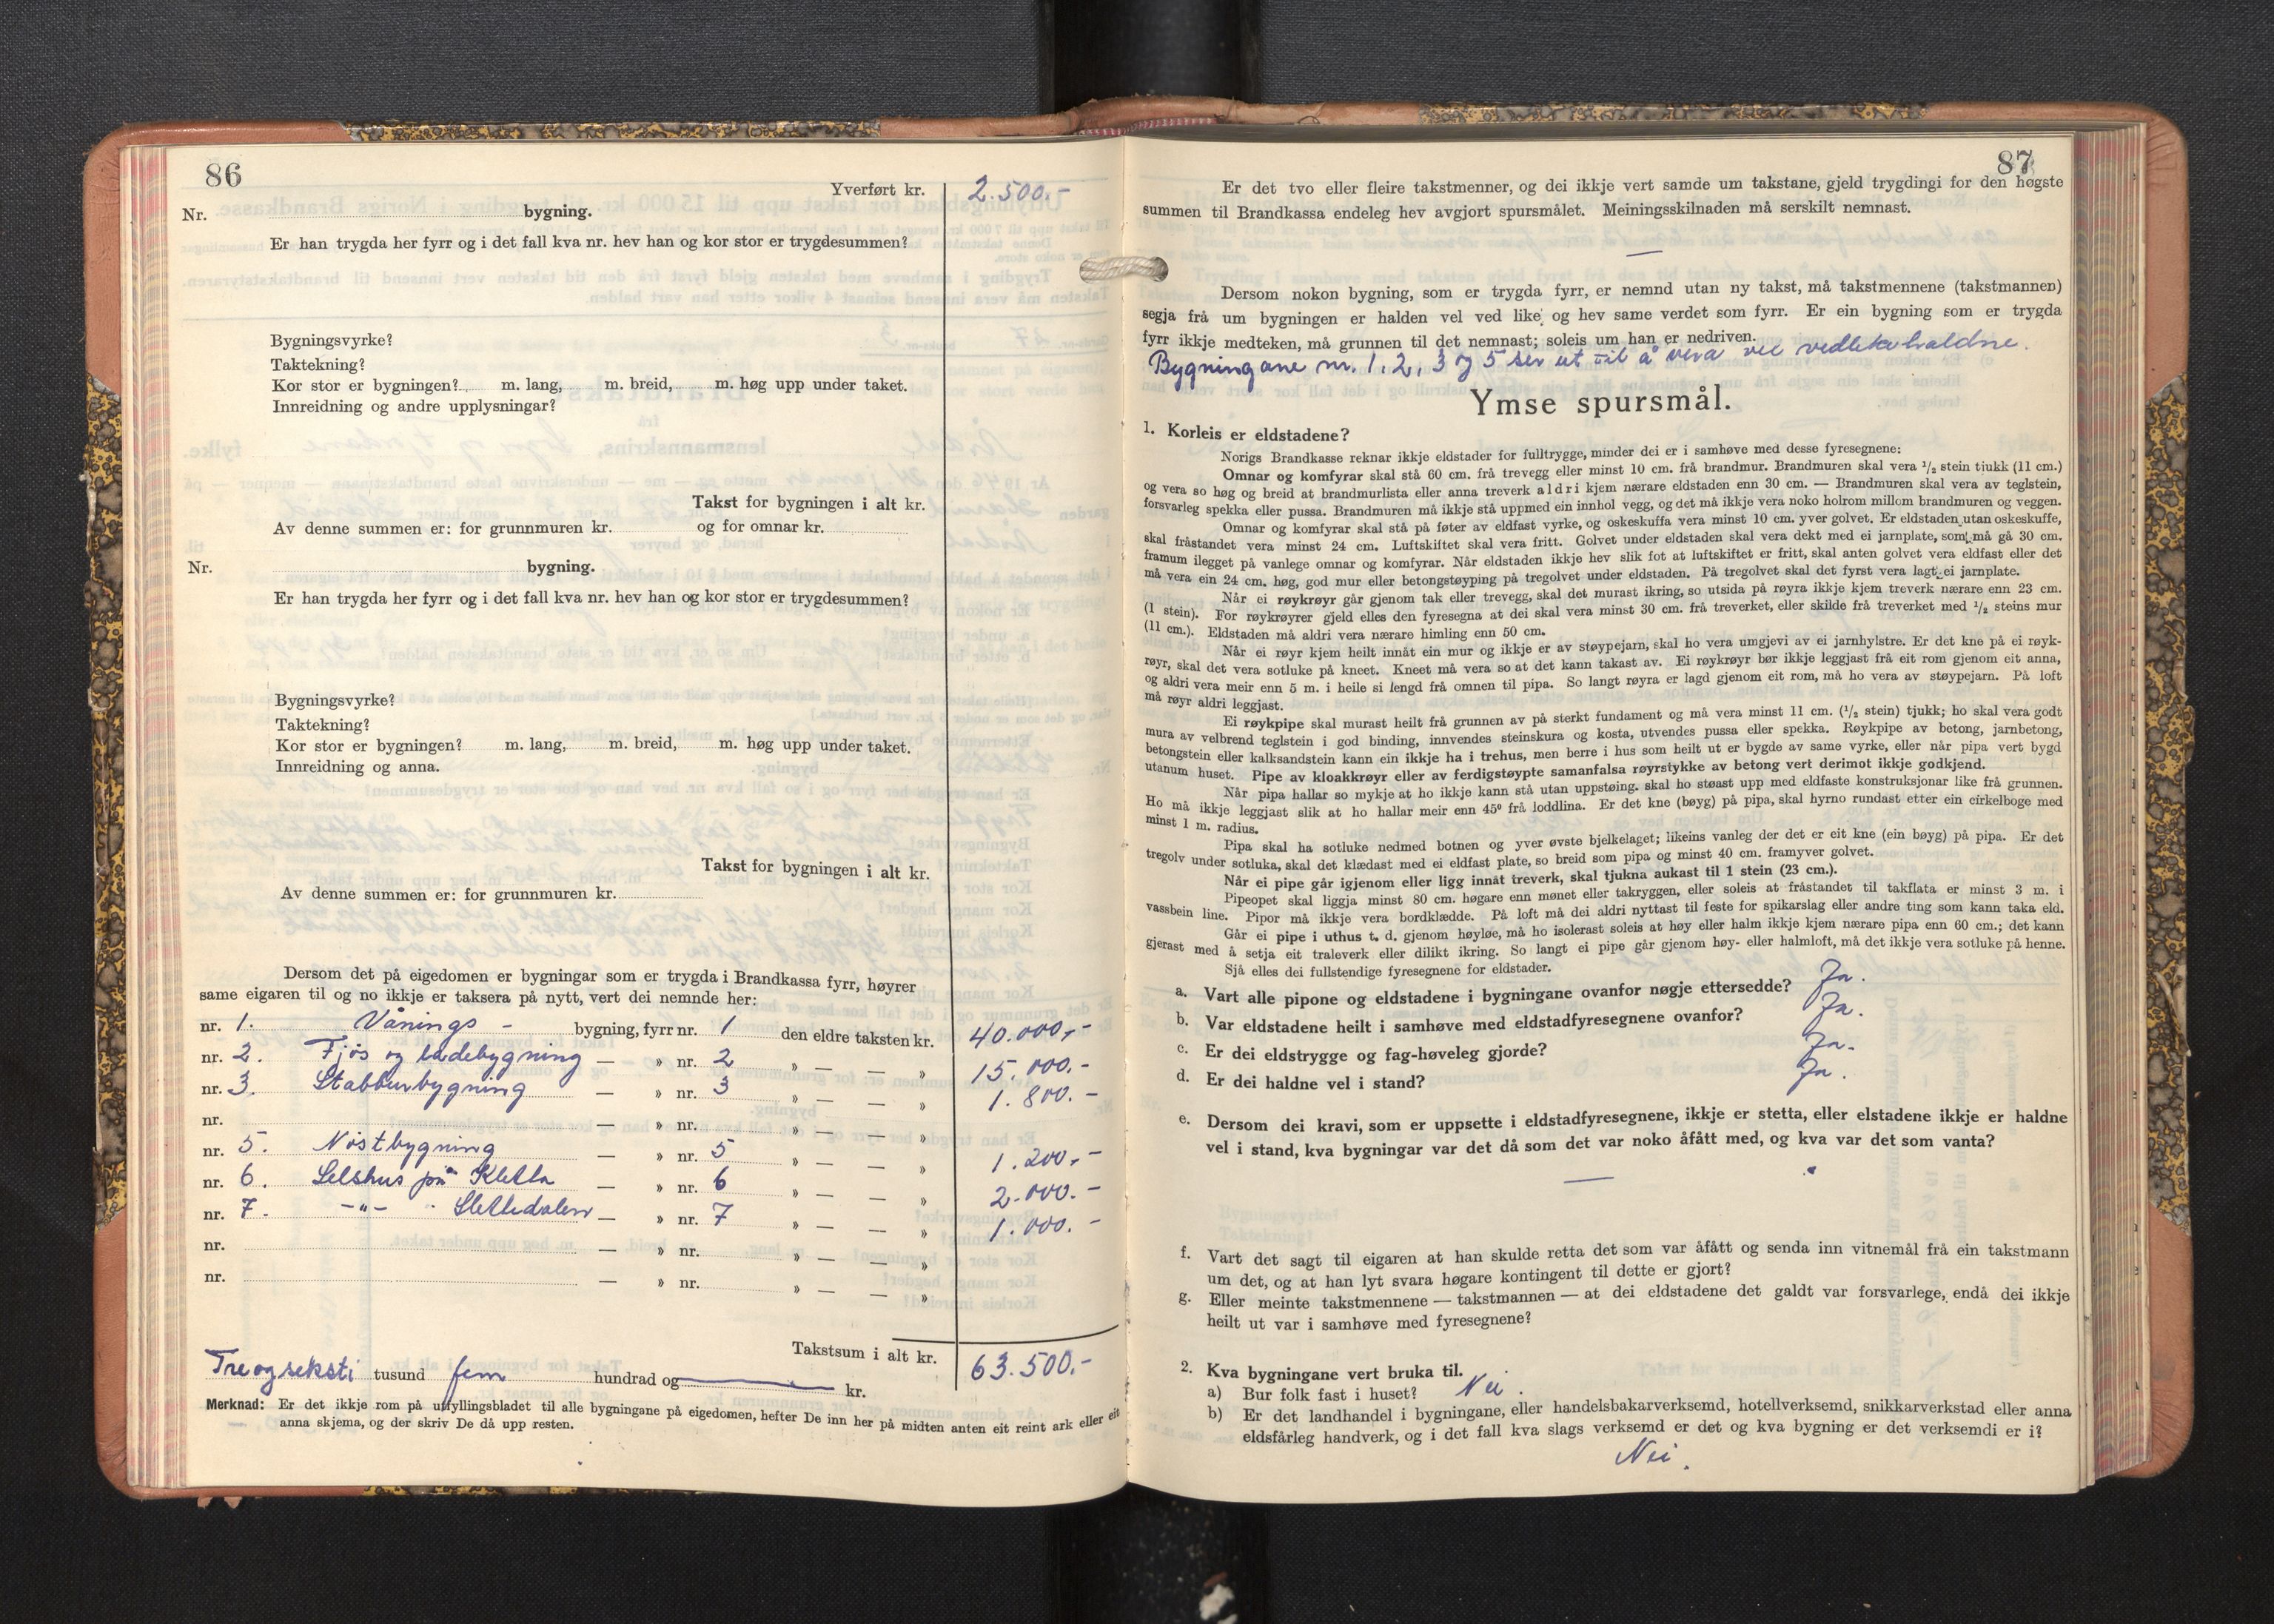 86
Yverført kr. 2.500.-
Nr. bygning.
Er han trygda her fyrr og i det fall kva nr. hev han og kor stor er trygdesummen?
Bygningsvyrke?
Taktekning?
Kor stor er bygningen? m. lang, m. breid, m. høg upp under taket.
Innreidning og andre upplysningar?
Takst for bygningen i alt kr.
Av denne summen er: for grunnmuren kr. og for omnar kr.
Nr. bygning.
Er han trygda her fyrr og i det fall kva nr. hev han og kor stor er trygdesummen?
Bygningsvyrke?
Taktekning?
Kor stor er bygningen? m. lang, m. breid, m. høg upp under taket.
Innreidning og anna.
Takst for bygningen i alt kr.
Av denne summen er: for grunnmuren kr.
Dersom det på eigedomen er bygningar som er trygda i Brandkassa fyrr, høyrer
same eigaren til og no ikkje er taksera på nytt, vert dei nemnde her:
nr. 1. Vånings - bygning, fyrr nr. 1 den eldre taksten kr. 40.000,-
nr. 2. Fjøs og ladebygning — » nr. 2 » — — » 15.000.-
nr. 3. Stabbursbygning — » nr. 3 » — — » 1.800.-
nr. — » nr. » — — »
nr. 5. Nøstbygning — » nr. 5 » — — » 1.200,-
nr. 6. Selshus på Kletta — » nr. 6 » — — » 2.000.-
nr. 7. -"- Slettedalen — » nr. 7 » — — » 1.000.-
nr. — » nr. » — — »
nr. — » nr. » — — »
Takstsum i alt kr. 63.500.-
Tre og seksti tusund fem hundrad og — kr.
Merknad: Er det ikkje rom på utfyllingsbladet til alle bygningane på eigedomen, hefter De inn her på midten anten eit reint ark eller eit
anna skjema, og der skriv De då upp resten.
87
Er det tvo eller fleire takstmenner, og dei ikkje vert samde um takstane, gjeld trygdingi for den høgste
summen til Brandkassa endeleg hev avgjort spursmålet. Meiningsskilnaden må serskilt nemnast.
—
Dersom nokon bygning, som er trygda fyrr, er nemnd utan ny takst, må takstmennene (takstmannen)
segja frå um bygningen er halden vel ved like og hev same verdet som fyrr. Er ein bygning som er trygda
fyrr ikkje medteken, må grunnen til det nemnast; soleis um han er nedriven.
Bygningane nr. 1, 2, 3 og 5 ser ut til å vera vel vedlikehaldne.
Ymse spursmål.
1. Korleis er eldstadene?
Norigs Brandkasse reknar ikkje eldstader for fulltrygge, minder dei er i samhøve med desse fyresegnene:
Omnar og komfyrar skal stå 60 cm. frå trevegg eller minst 10 cm. frå brandmur. Brandmuren skal vera 1/2 stein tjukk (11 cm.)
og vera so høg og breid at brandmurlista eller anna treverk aldri kjem nærare eldstaden enn 30 cm. — Brandmuren skal vera av teglstein,
forsvarleg spekka eller pussa. Brandmuren må ikkje stå uppmed ein innhol vegg, og det må ikkje vera noko holrom millom brandmuren og veggen.
Omnar og komfyrar skal stå på føter av eldfast vyrke, og oskeskuffa vera minst 10 cm. yver golvet. Er eldstaden utan oskeskuffe,
skal fråstandet vera minst 24 cm. Luftskiftet skal vera fritt. Golvet under eldstaden skal vera dekt med ei jarnplate, som må gå 30 cm.
framum ilegget på vanlege omnar og komfyrar. Når eldstaden ikkje hev slik fot at luftskiftet er fritt, skal anten golvet vera eldfast eller det
må vera ein 24 cm. høg, god mur eller betongstøyping på tregolvet under eldstaden. På tregolvet skal det fyrst vera lagt ei jarnplate.
Når ei røykrøyr går gjenom tak eller trevegg, skal det murast ikring, so utsida på røyra ikkje kjem treverk nærare enn 23 cm.
(1 stein). For røykrøyrer gjeld elles den fyresegna at dei skal vera minst 30 cm. frå treverket, eller skilde frå treverket med 1/2 steins mur
(11 cm.). Eldstaden må aldri vera nærare himling enn 50 cm.
Når ei røyr kjem heilt innåt ein mur og ikkje er av støypejarn, skal ho vera umgjevi av ei jarnhylstre. Er det kne på ei røyk-
røyr, skal det vera sotluke på kneet. Kneet må vera so at det kann takast av. Ei røykrøyr bør ikkje leggjast frå eit rom gjenom eit anna,
og aldri vera meir enn 5 m. i heile si lengd frå omnen til pipa. So langt røyra er lagd gjenom eit rom, må ho vera av støypejarn. På loft
må røyr aldri leggjast.
Ei røykpipe skal murast heilt frå grunnen av på sterkt fundament og må vera minst 11 cm. (1/2 stein) tjukk; ho skal vera godt
mura av velbrend teglstein i god binding, innvendes steinskura og kosta, utvendes pussa eller spekka. Røykpipe av betong, jarnbetong,
betongstein eller kalksandstein kann ein ikkje ha i trehus, men berre i hus som heilt ut er bygde av same vyrke, eller når pipa vert bygd
utanum huset. Pipe av kloakkrøyr eller av ferdigstøypte samanfalsa røyrstykke av betong vert derimot ikkje godkjend.
Når pipa hallar so mykje at ho ikkje kann stå utan uppstøing. skal ho støast upp med eldfaste konstruksjonar like frå grunnen.
Ho må ikkje leggjast slik at ho hallar meir enn 45° frå loddlina. Er det kne (bøyg) på pipa, skal hyrno rundast etter ein cirkelboge med
minst 1 m. radius.
Pipa skal ha sotluke nedmed botnen og yver øvste bjelkelaget; likeins vanleg der det er eit kne (ein bøyg) på pipa. Er det
tregolv under sotluka, skal det klædast med ei eldfast plate, so breid som pipa og minst 40 cm. framyver golvet.
Når ei pipe går igjenom eller ligg innåt treverk, skal tjukna aukast til 1 stein (23 cm.).
Pipeopet skal liggja minst 80 cm. høgare enn mønet eller takryggen, eller soleis at fråstandet til takflata er minst 3 m. i
vassbein line. Pipor må ikkje vera bordklædde. På loft må dei aldri nyttast til feste for spikarslag eller andre ting som kann taka eld.
Går ei pipe i uthus t. d. gjenom høyløe, må ho isolerast soleis at høy eller halm ikkje kjem nærare pipa enn 60 cm.; det kann
gjerast med å setja eit traleverk eller dilikt ikring. So langt ei pipe går gjenom høy- eller halmloft, må det ikkje vera sotluke på henne.
Sjå elles dei fullstendige fyresegnene for eldstader.
a. Vart alle pipone og eldstadene i bygningane ovanfor nøgje ettersedde? Ja.
b. Var eldstadene heilt i samhøve med eldstadfyresegnene ovanfor? Ja.
c. Er dei eldstrygge og fag-høveleg gjorde? Ja.
d. Er dei haldne vel i stand? Ja.
e. Dersom dei kravi, som er uppsette i eldstadfyresegnene, ikkje er stetta, eller elstadene ikkje er haldne
vel i stand, kva bygningar var det då som det var noko åfått med, og kva var det som vanta?
—
f. Vart det sagt til eigaren at han skulde retta det som var åfått og senda inn vitnemål frå ein takstmann
um det, og at han lyt svara høgare kontingent til dette er gjort?
g. Eller meinte takstmennene — takstmannen — at dei eldstadene det galdt var forsvarlege, endå dei ikkje
heilt ut var i samhøve med fyresegnene?
2. Kva bygningane vert bruka til.
a) Bur folk fast i huset? Nei.
b) Er det landhandel i bygningane, eller handelsbakarverksemd, hotellverksemd, snikkarverkstad eller anna
eldsfårleg handverk, og i det fall kva slags verksemd er det og kva bygning er det verksemdi er i?
Nei.